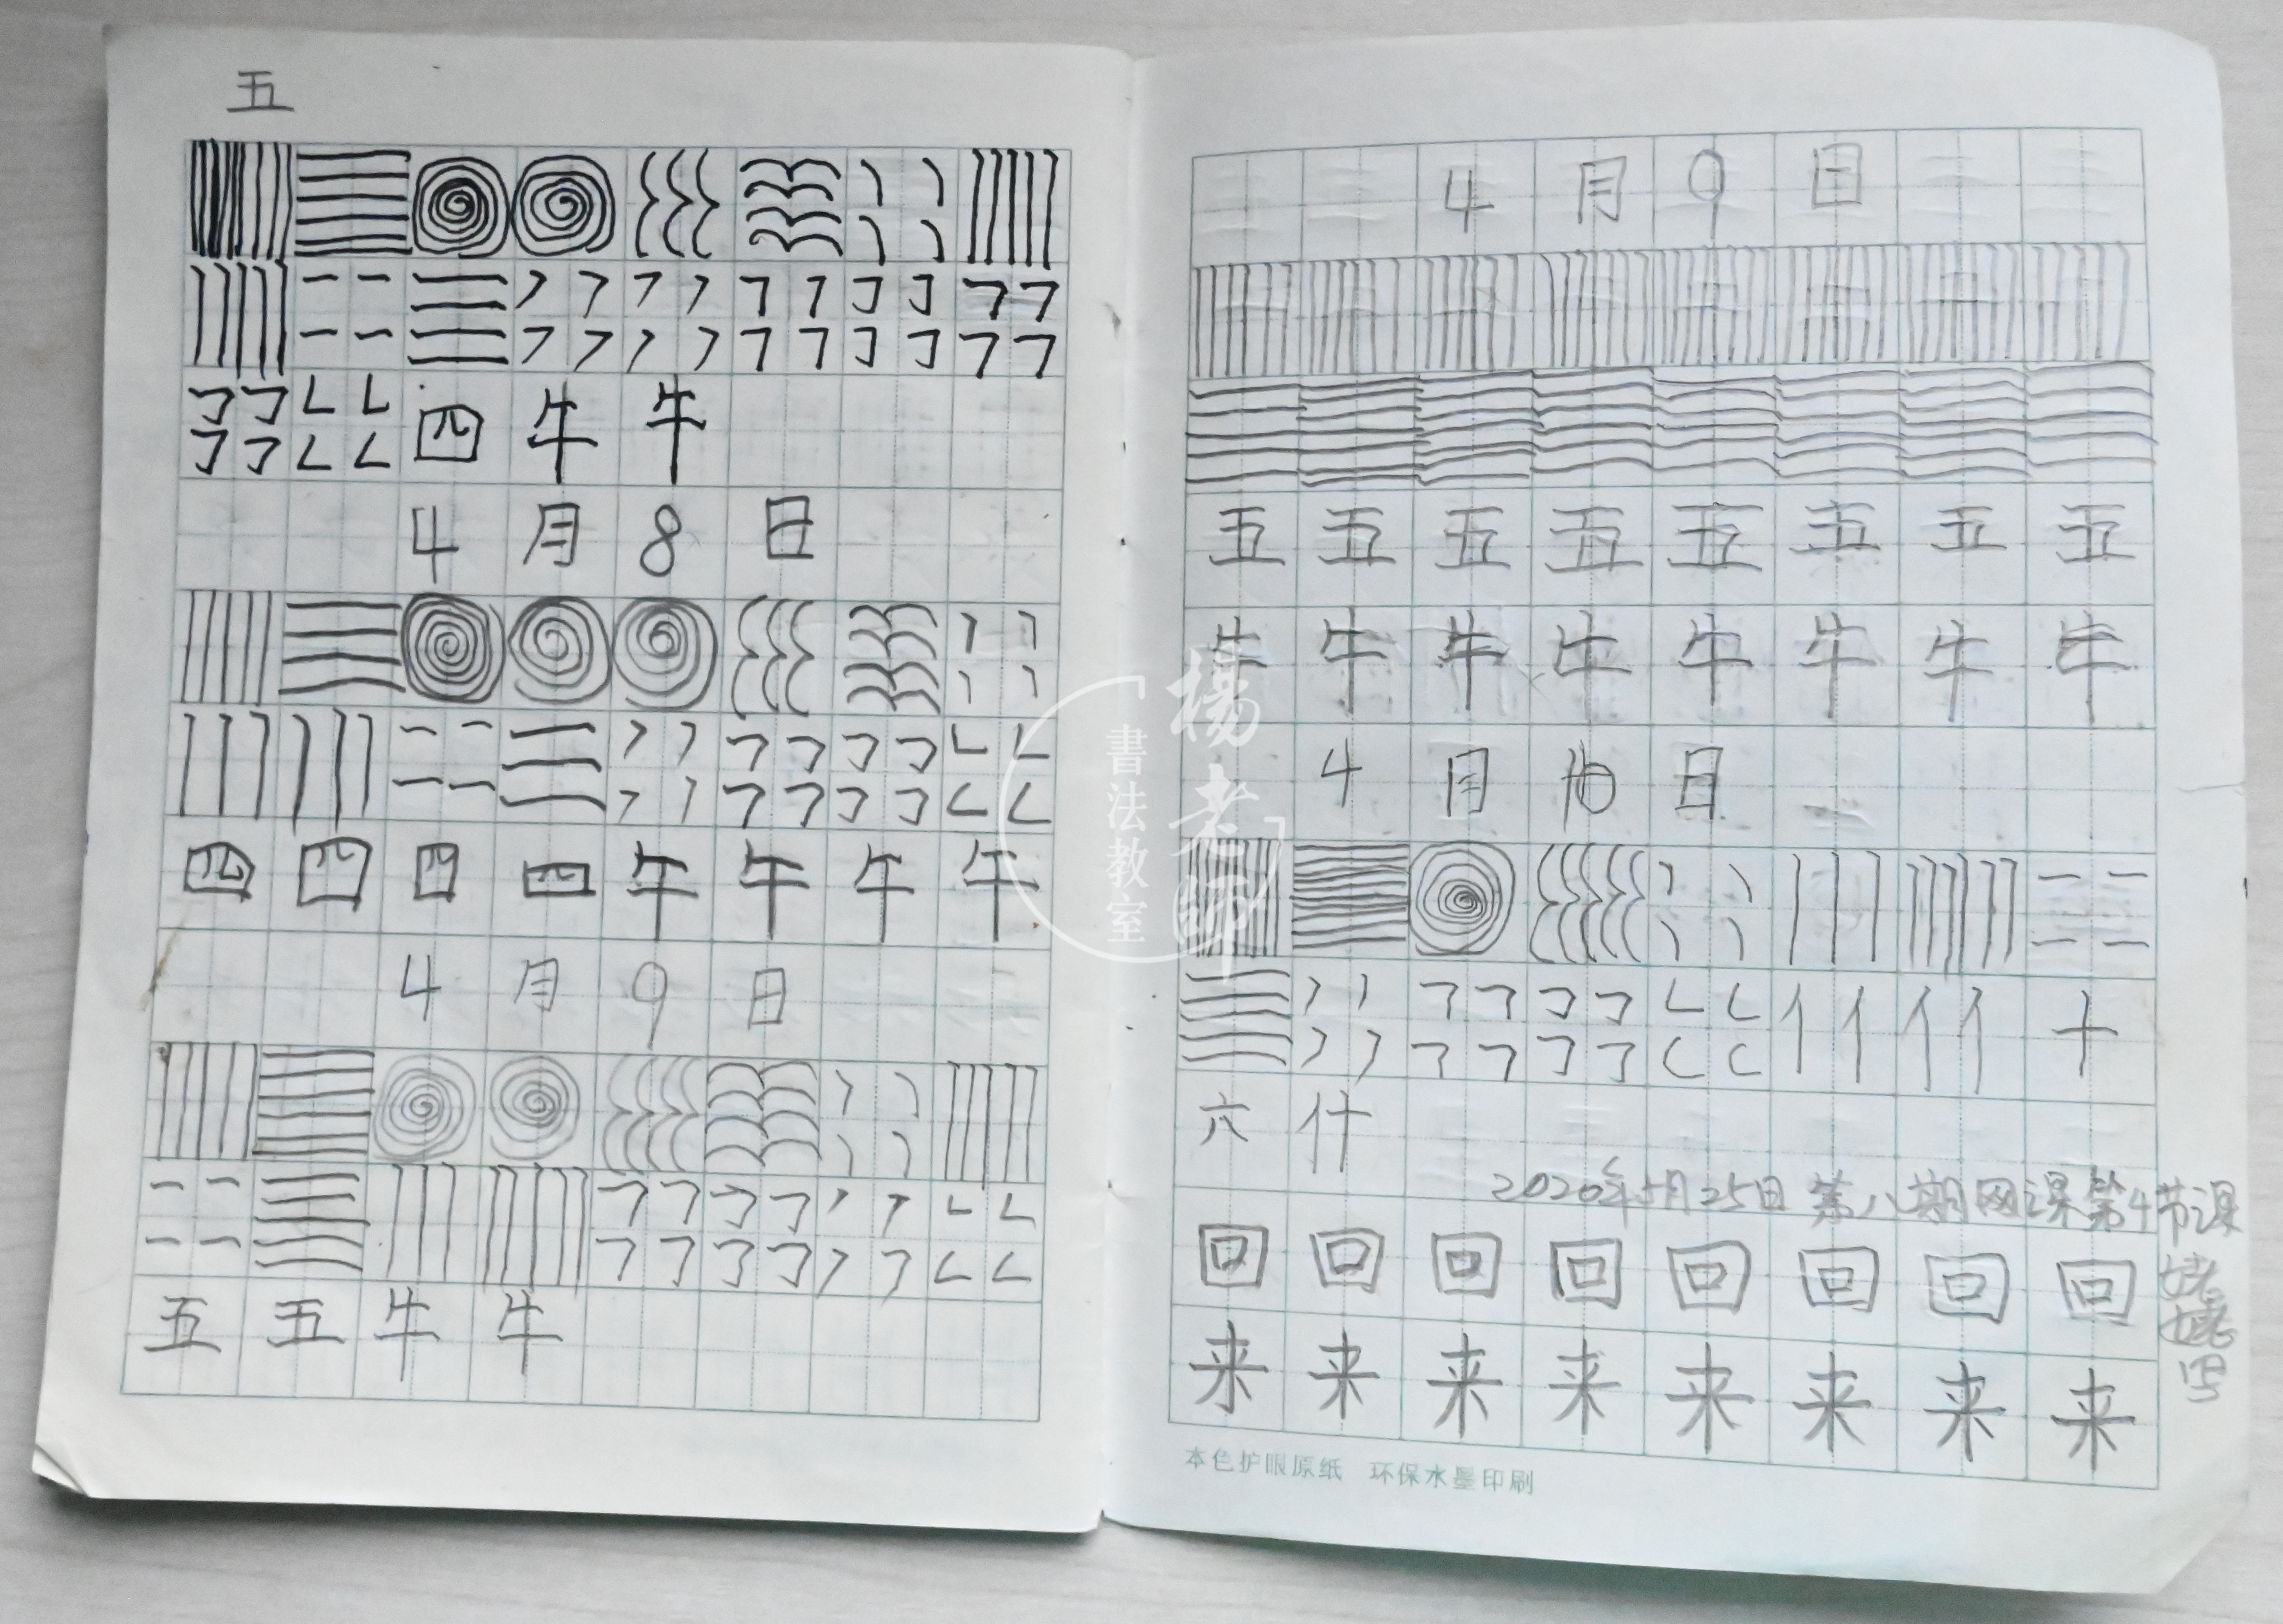 五
四牛牛
4月8日
四四四四午午午午
4月9日
五五牛牛
4月9日
五五五五五五五五
牛牛牛牛牛牛牛牛
4月10日
十
六什
2020年5月25日第八期网课第4节课
回回回回回回回回
来来来来来来来来
本色护眼原纸 环保水墨印刷
楊老師
書法教室